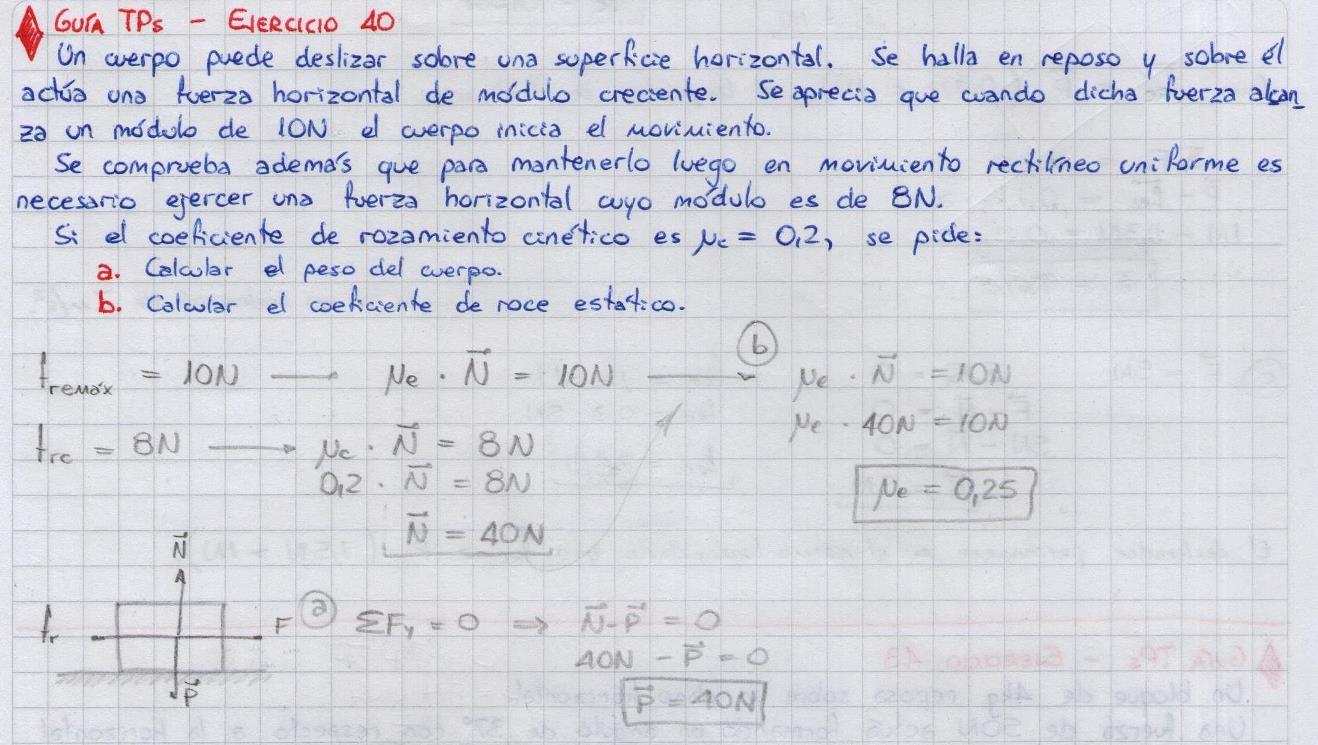 GUÍA TPs - EJERCICIO 40
Un cuerpo puede deslizar sobre una superficie horizontal. Se halla en reposo y sobre él
actúa una fuerza horizontal de módulo creciente. Se aprecia que cuando dicha fuerza alcan
za un módulo de 10N el cuerpo inicia el movimiento.
Se comprueba además que para mantenerlo luego en movimiento rectilíneo uniforme es
necesario ejercer una fuerza horizontal cuyo módulo es de 8N.
Si el coeficiente de rozamiento cinético es μc = 0,2, se pide:
a. Calcular el peso del cuerpo.
b. Calcular el coeficiente de roce estático.
b
fremáx = 10N → μe · N⃗ = 10N → μe · N⃗ = 10N
μe · 40N = 10N
frc = 8N → μc · N⃗ = 8N
0,2 · N⃗ = 8N
μe = 0,25
N⃗ = 40N
N⃗
fr F a ΣFy = 0 ⇒ N⃗-P⃗ = 0
40N - P⃗ = 0
P⃗
P⃗ = 40N